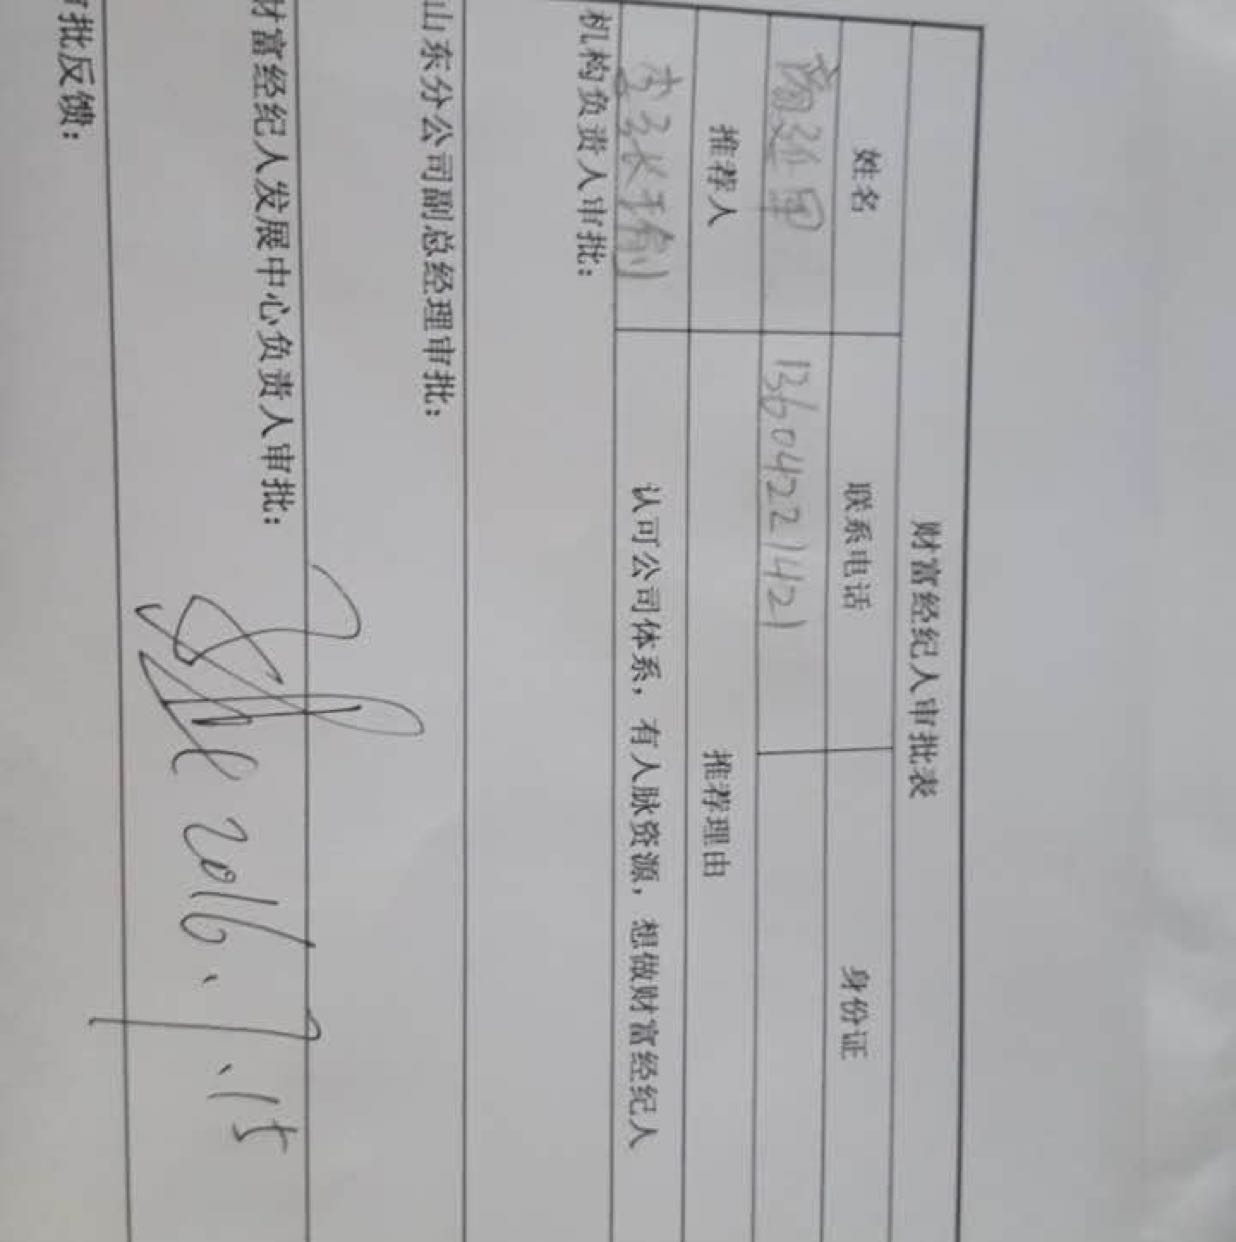 财富经纪人审批表
姓名 联系电话 身份证
13604221421
推荐人 推荐理由
认可公司体系，有人脉资源，想做财富经纪人
机构负责人审批：
山东分公司副总经理审批：
财富经纪人发展中心负责人审批：
2016、7、15
审批反馈：